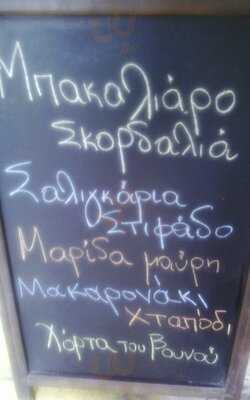 Μπακαλιάρο
Σκορδαλιά
Σαλιγκάρια
Στιφάδο
Μαρίδα μαύρη
Μακαρονάκι
Χταπόδι
Χόρτα του Βουνού